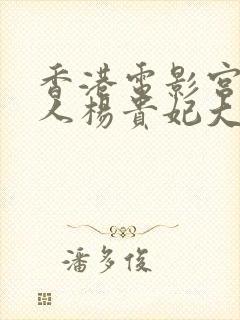 香港電影宮
人楊貴妃大
潘多俊